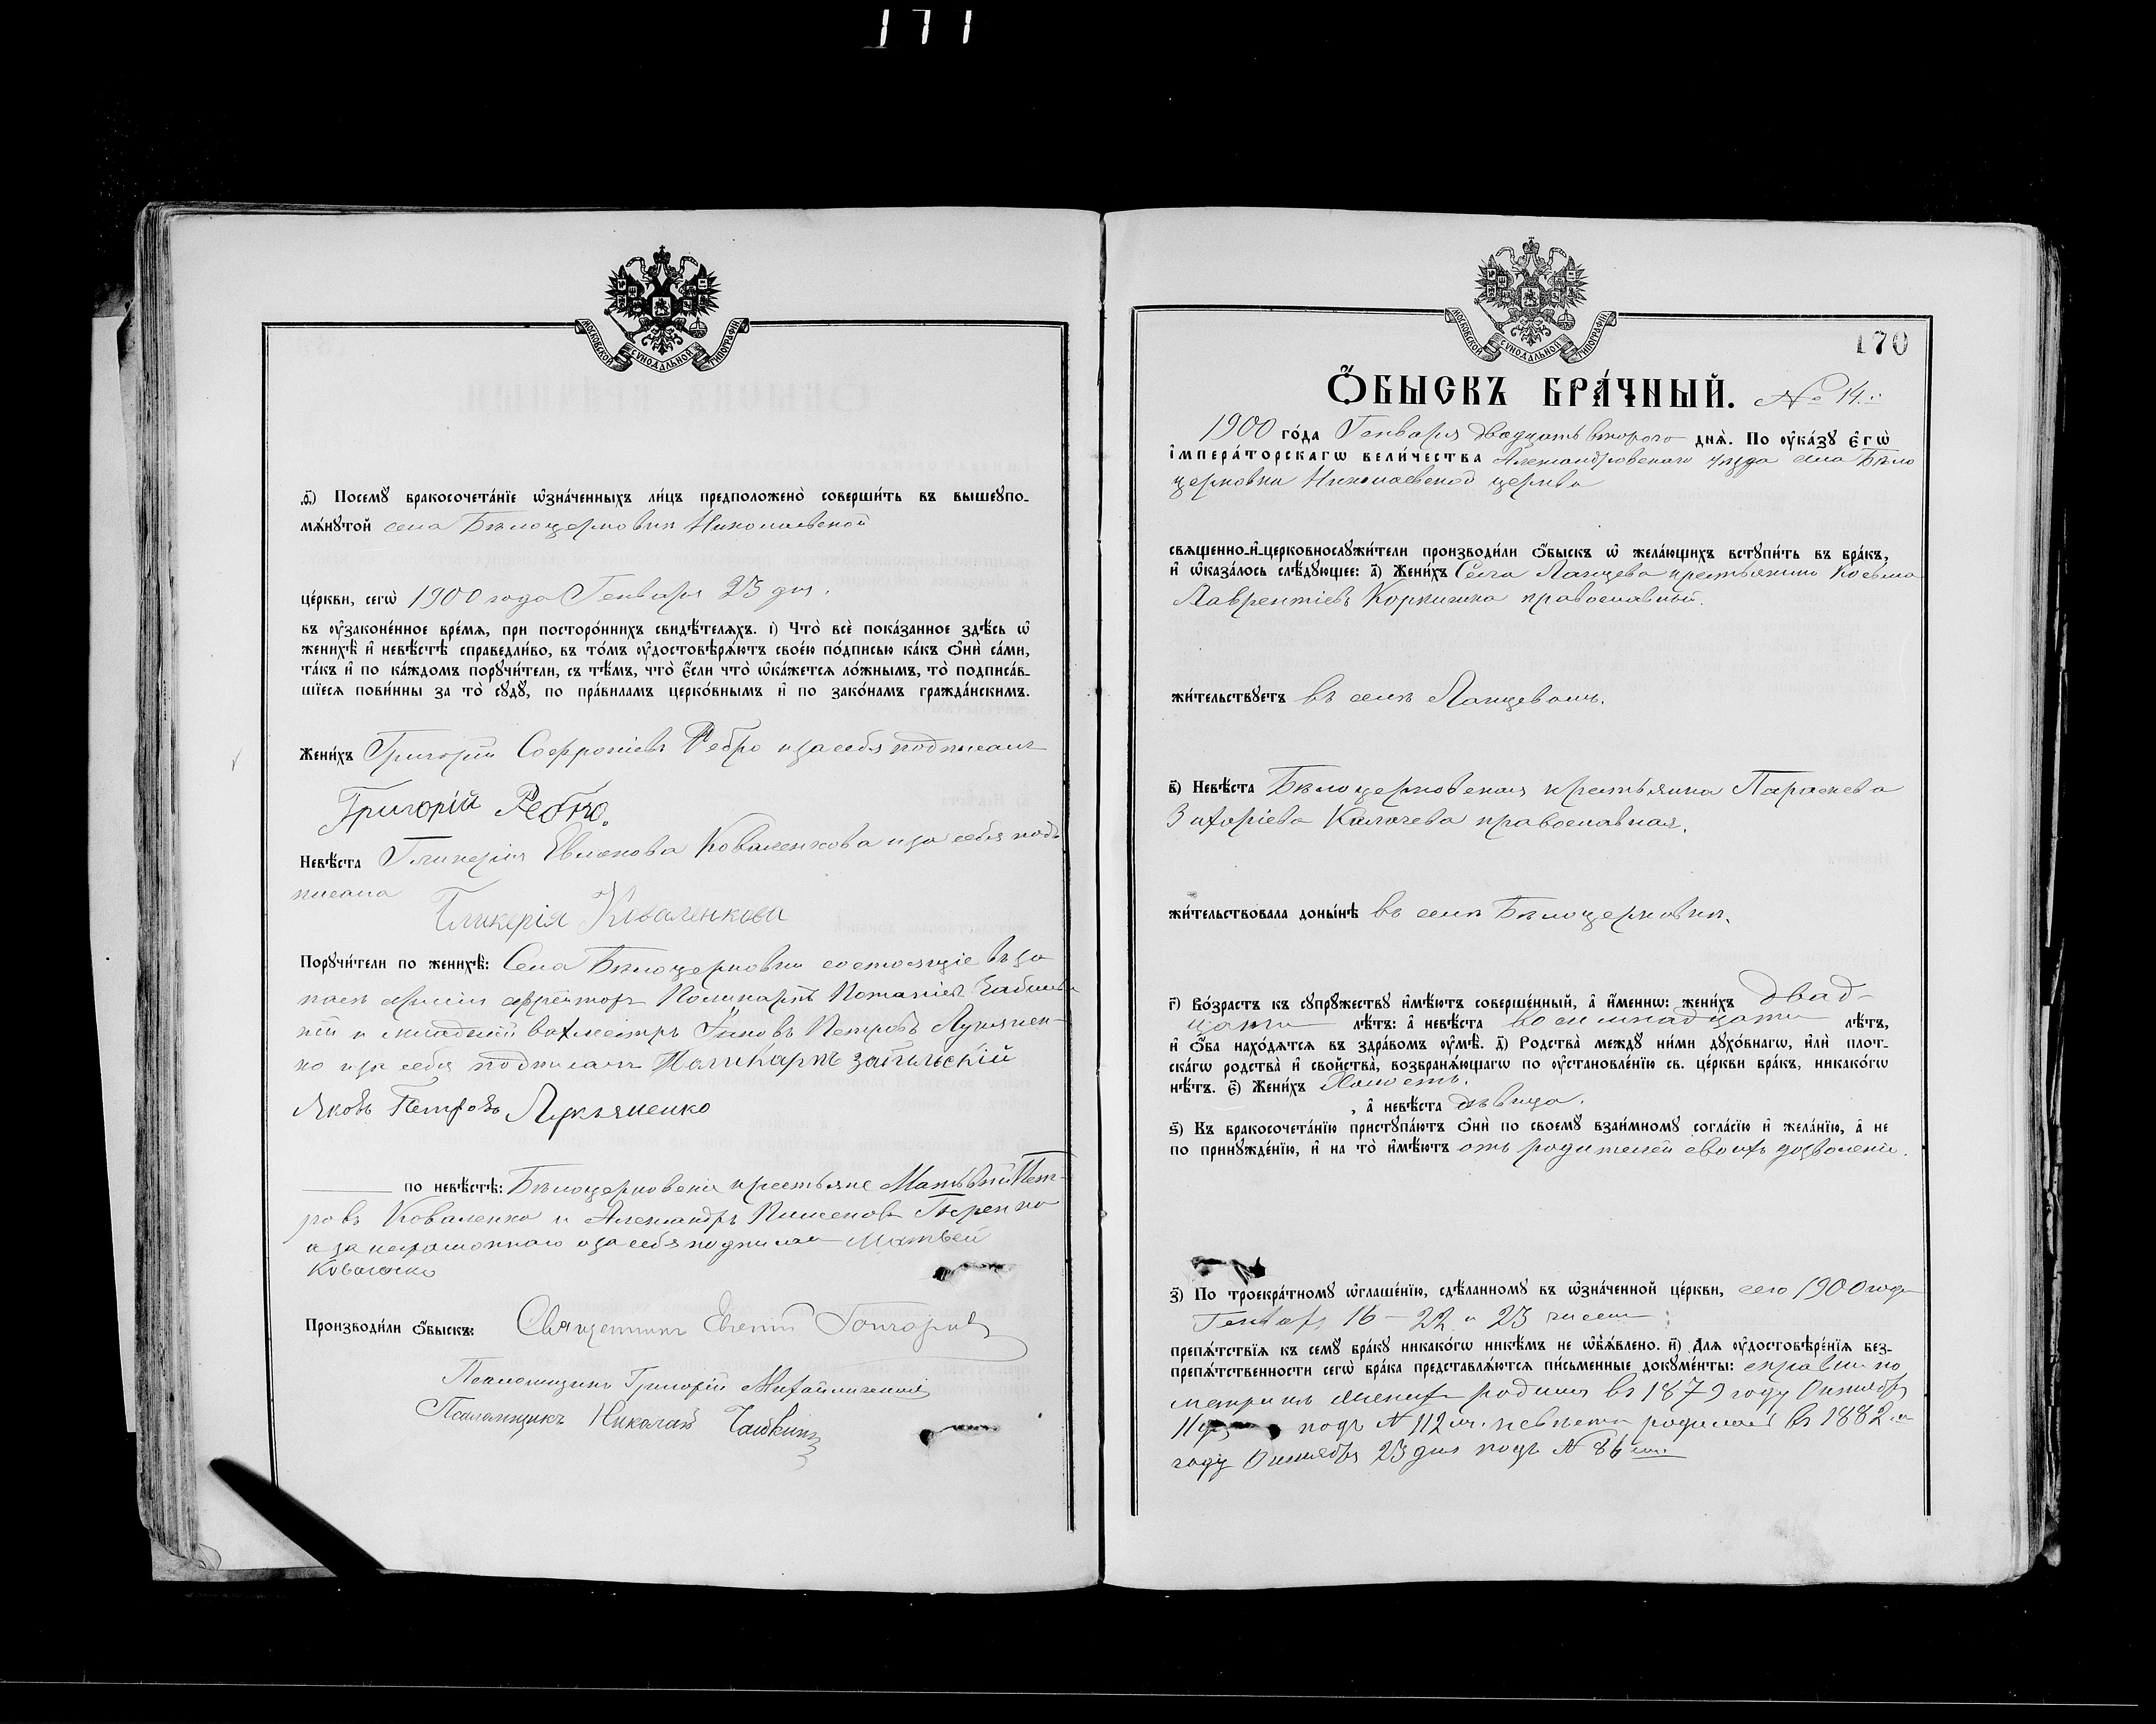 171
МОСКОВСКОЙ СУНОДАЛЬНОЙ ТИПОГРАФІИ
д҃і) Посемꙋ бракосочета́нїе ѡ҆зна́ченныхъ ли́цъ предположено̀ соверши́ть въ вышеꙋпо-
мѧ́нꙋтой села Бѣлоцерковки Николаевской
це́ркви, сегѡ̀ 1900 года Генваря 23 дня.
въ ᲂу҆зако́ненное вре́мѧ, при посторо́ннихъ свидѣ́телѧхъ. і) Что̀ всѐ пока́занное здѣ́сь ѡ҆
женихѣ̀ и҆ невѣ́стѣ справедли́во, въ то́мъ ᲂу҆достовѣрѧ́ютъ свое́ю по́дписью ка́къ ѻ҆нѝ са́ми,
та́къ и҆ по ка́ждомъ порꙋчи́тели, съ тѣ́мъ, что̀ є҆́сли что̀ ѡ҆ка́жетсѧ ло́жнымъ, то̀ подписа́в-
шїесѧ пови́нны за то̀ сꙋдꙋ̀, по пра́виламъ церко́внымъ и҆ по зако́намъ гражда́нскимъ.
Жени́хъ Григорій Софроніевъ Ребро и за себя подписалъ
Григорій Ребро.
Невѣ́ста Гликерія Евменова Коваленкова и за себя под-
писала
Гликерія Коваленкова
Порꙋчи́тели по женихѣ̀: Села Бѣлоцерковки состоящіе въ за
пасѣ арміи ефрейторъ Поликарпъ Потапіевъ
и младшій вахмистръ Іаковъ Петровъ Лукьянен-
ко и за себя подписали Поликарпъ
Яковъ Петровъ Лукьяненко
по невѣ́стѣ: Бѣлоцерковскіе крестьяне Матвѣй Пет-
ровъ Коваленко и Александръ Пименовъ
и за неграмотнаго и за себя подписалъ Матвей
Коваленко
Производи́ли ѻ҆́быскъ: Священникъ Евгеній Гончаровъ
Псаломщикъ Григорій Михайличенко
Псаломщикъ Николай Чайкинъ
МОСКОВСКОЙ СУНОДАЛЬНОЙ ТИПОГРАФІИ
170
Ѻ҆́БЫСКЪ БРА́ЧНЫЙ. № 14.й
1900 го́да Генваря двадцать второго днѧ̀. По ᲂу҆ка́зꙋ є҆гѡ̀
і҆мпера́торскагѡ вели́чества Александровского уѣзда села Бѣло
церковки Николаевской церкви
свѧщенно-и҆-церковнослꙋжи́тели производи́ли ѻ҆́быскъ ѡ҆ жела́ющихъ встꙋпи́ть въ бра́къ,
и҆ ѡ҆каза́лось слѣ́дꙋющее: а҃) Жени́хъ Села Ланцева крестьянинъ Косьма
Лаврентіевъ Коркишко православный.
жи́тельствꙋетъ въ селѣ Ланцевомъ.
в҃) Невѣ́ста Бѣлоцерковская крестьянка Параскева
Захаріева Калачева православная.
жи́тельствовала доны́нѣ въ селѣ Бѣлоцерковкѣ.
г҃) Во́зрастъ къ сꙋпрꙋ́жествꙋ и҆мѣ́ютъ соверше́нный, а҆ и҆́меннѡ: жени́хъ двад-
цати лѣ́тъ: а҆ невѣ́ста восемнадцати лѣ́тъ,
и҆ ѻ҆́ба нахо́дѧтсѧ въ здра́вомъ ᲂу҆мѣ̀. д҃) Родства̀ междꙋ ни́ми дꙋхо́внагѡ, и҆лѝ плот-
ска́гѡ родства̀ и҆ сво́йства, возбранѧ́ющагѡ по ᲂу҆становле́нїю св. це́ркви бра́къ, никако́гѡ
нѣ́тъ. є҃) Жени́хъ Холостъ.
, а҆ невѣ́ста дѣвица.
ѕ҃) Къ бракосочета́нїю пристꙋпа́ютъ ѻ҆нѝ по своемꙋ̀ взаи́мномꙋ согла́сїю и҆ жела́нїю, а҆ не
по принꙋжде́нїю, и҆ на то̀ и҆мѣ́ютъ отъ родителей своихъ дозволеніе.
з҃) По троекра́тномꙋ ѡ҆глаше́нїю, сдѣ́ланномꙋ въ ѡ҆зна́ченной це́ркви, сего 1900 года
Генвар. 16 - 22 и 23 чиселъ
препѧ́тствїѧ къ семꙋ̀ бра́кꙋ никако́гѡ никѣ́мъ не ѡ҆б̾ѧ́влено. и҃) Длѧ ᲂу҆достовѣре́нїѧ без-
препѧ́тственности сегѡ̀ бра́ка представлѧ́ютсѧ пи́сьменные докꙋме́нты: справки по
метрикѣ женихъ родился въ 1879 году Октября
11 подъ № 112 м. невѣста родилась въ 1882 м
году Октября 23 дня подъ № 86